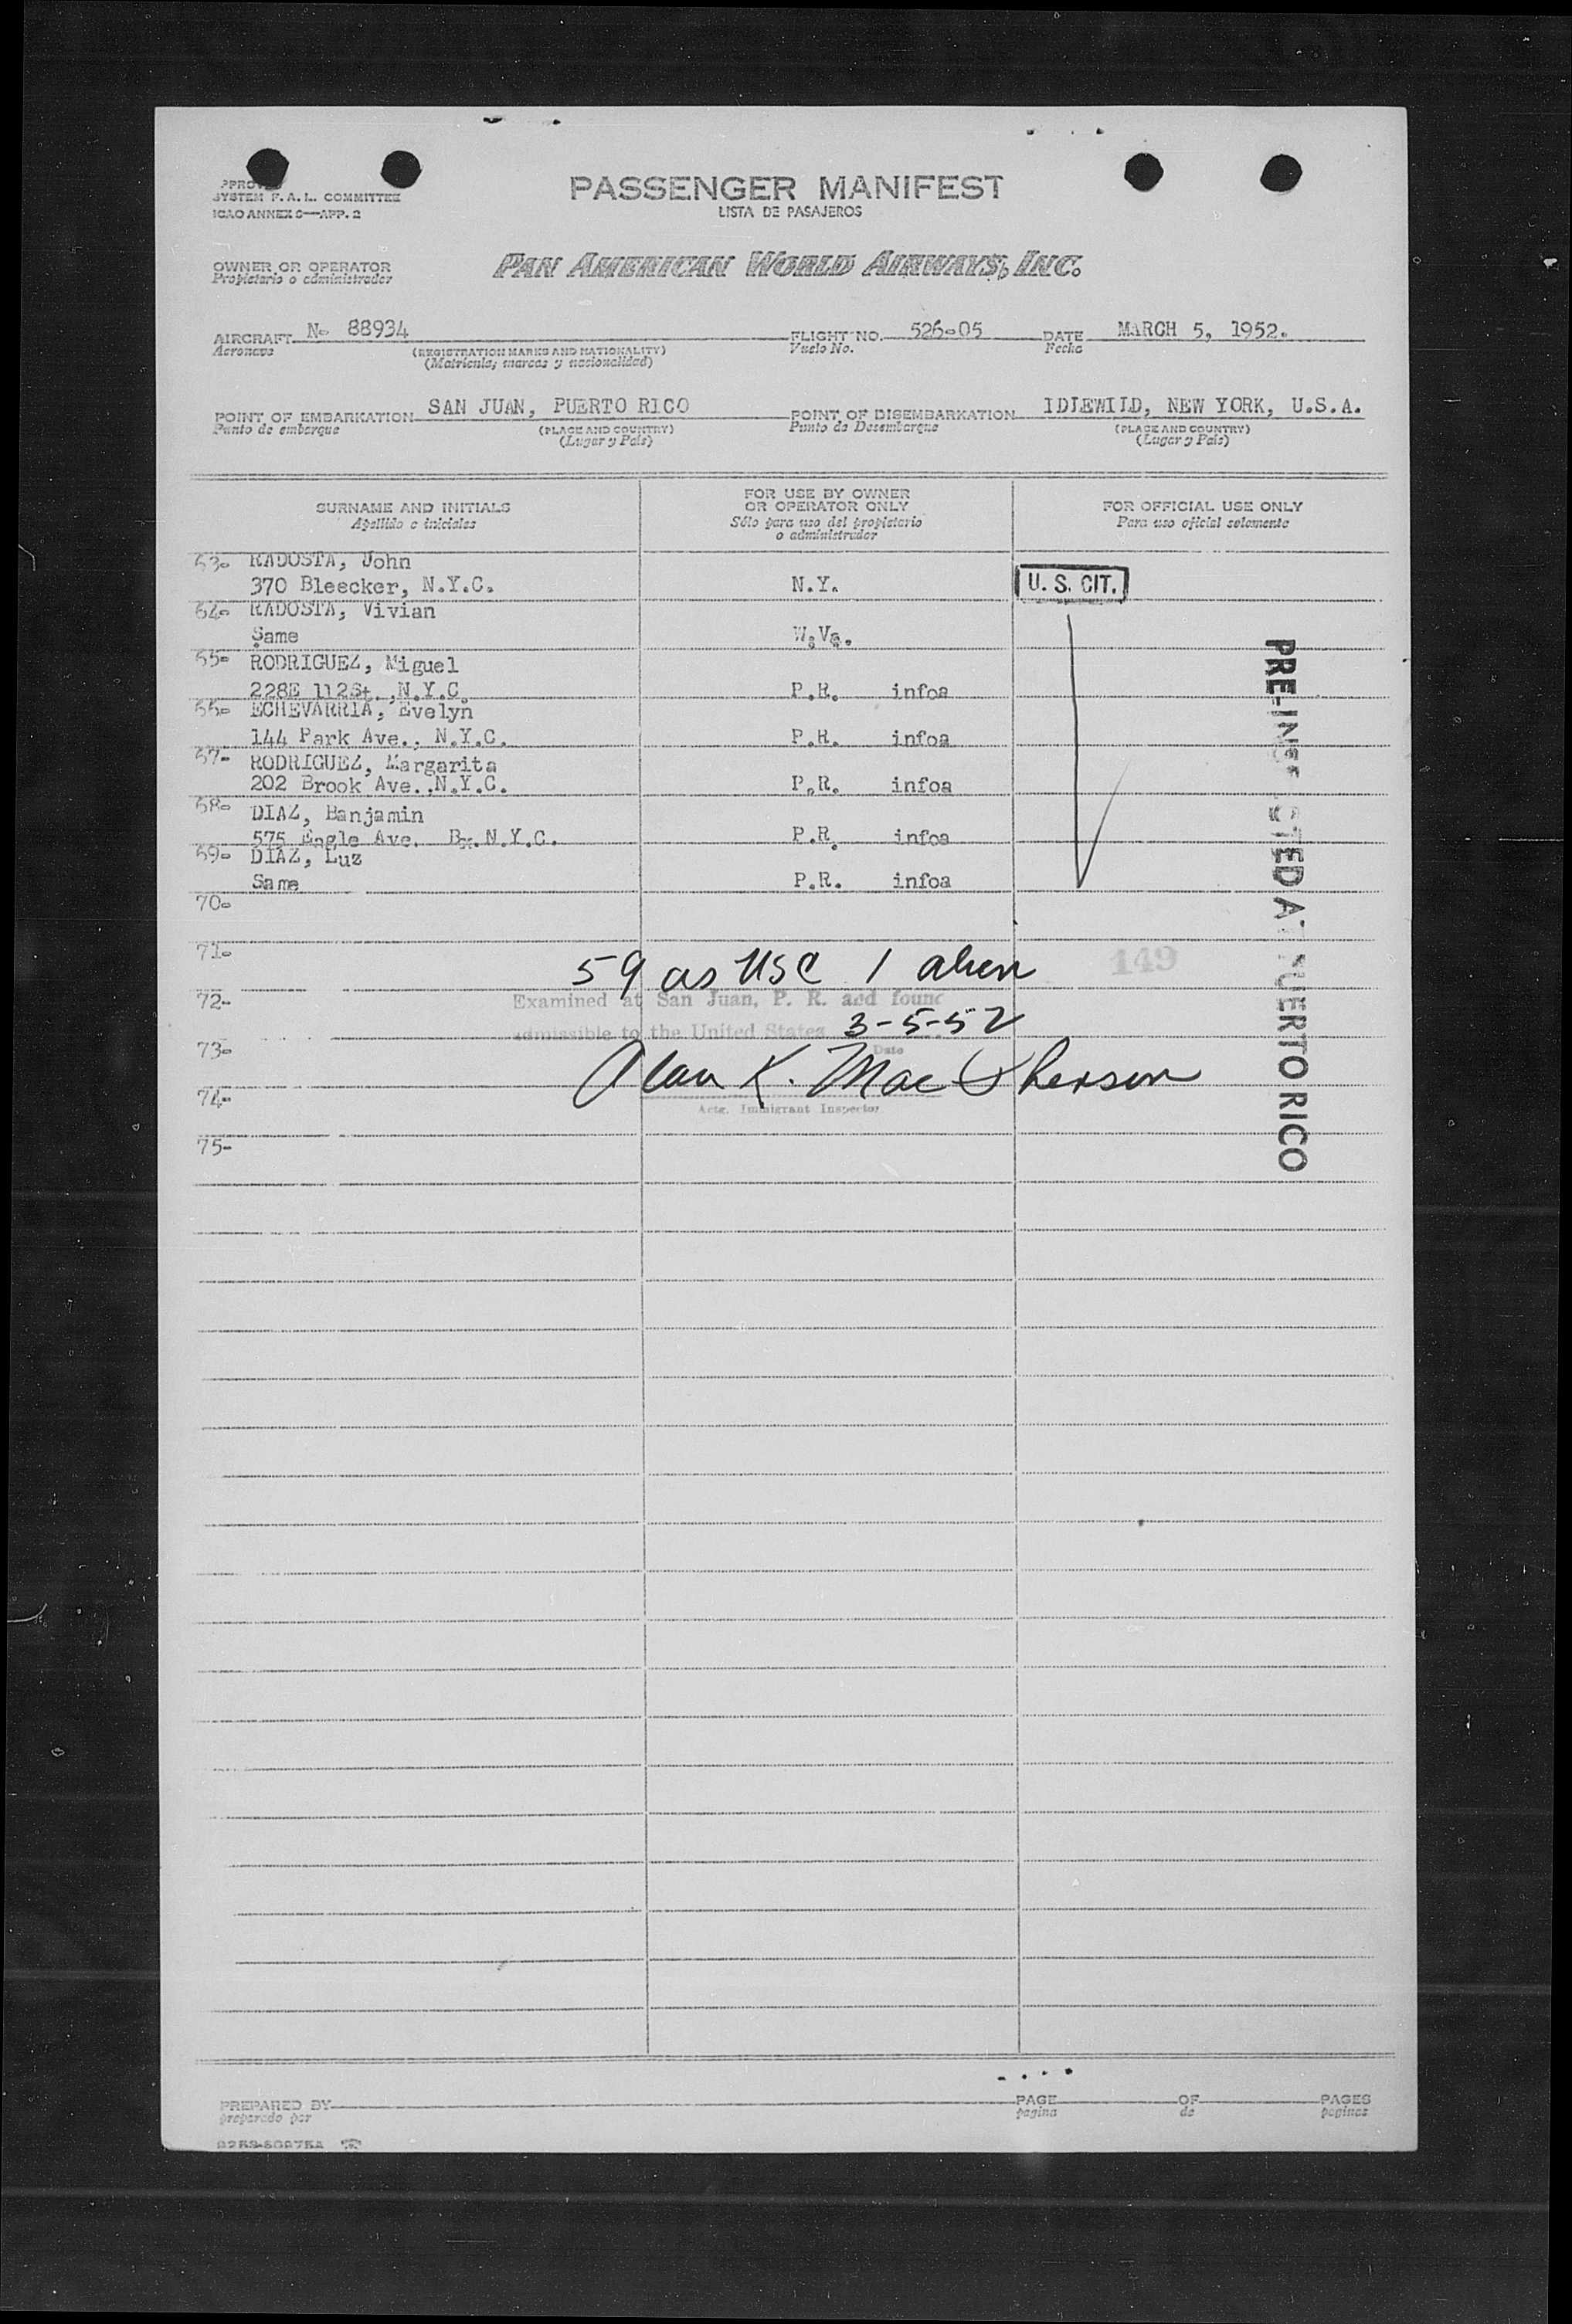 SYSTEM F. A. L. COMMITTEE
ICAO ANNEX 9—APP. 2
PASSENGER MANIFEST
LISTA DE PASAJEROS
OWNER OR OPERATOR
Propietario o administrador
PAN AMERICAN WORLD AIRWAYS, INC.
AIRCRAFT N- 88934 FLIGHT NO. 526-05 DATE MARCH 5, 1952.
Aeronave (REGISTRATION MARKS AND NATIONALITY) Vuelo No. Fecha
(Matricula; marcas y nacionalidad)
POINT OF EMBARKATION SAN JUAN, PUERTO RICO POINT OF DISEMBARKATION IDLEWILD, NEW YORK, U.S.A.
Punto de embarque (PLACE AND COUNTRY) Punto de Desembarque (PLACE AND COUNTRY)
(Lugar y País) (Lugar y País)
SURNAME AND INITIALS
Apellido e iniciales
FOR USE BY OWNER
OR OPERATOR ONLY
Sólo para uso del propietario
o administrador
FOR OFFICIAL USE ONLY
Para uso oficial solamente
63- RADOSTA, John
370 Bleecker, N.Y.C. N.Y. U. S. CIT.
64- RADOSTA, Vivian
Same W.Va.
65- RODRIGUEZ, Miguel
228E 112St. ,N.Y.C. P.R. infoa
66- ECHEVARRIA, Evelyn
144 Park Ave., N.Y.C. P.R. infoa
67- RODRIGUEZ, Margarita
202 Brook Ave.,N.Y.C. P.R. infoa
68- DIAZ, Banjamin
575 Eagle Ave. Bx.N.Y.C. P.R. infoa
69- DIAZ, Luz
Same P.R. infoa
70-
71-
59 as USC 1 alien 149
72- Examined at San Juan, P. R. and found
admissible to the United States 3-5-52
73- Date
Alan K. MacPherson
74- Actg. Immigrant Inspector
75-
PRE-INSPECTED AT PUERTO RICO
PREPARED BY PAGE OF PAGES
preparado por pagina de paginas